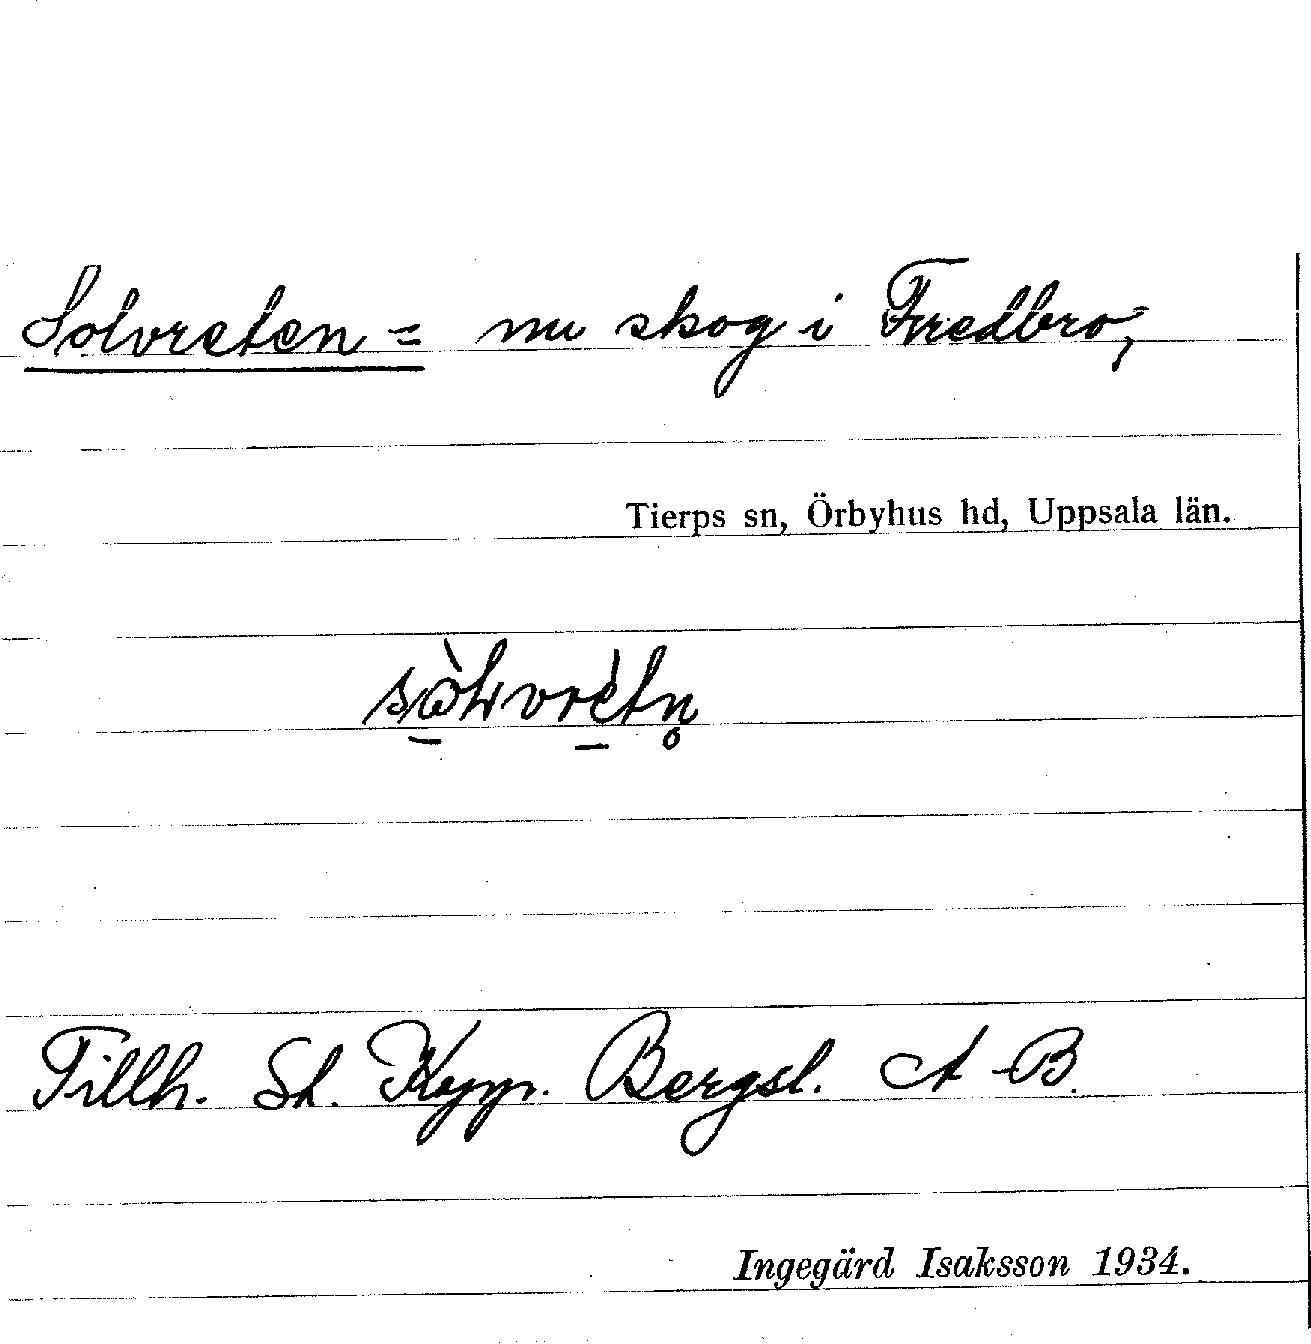 Solvreten = nu skog i Fredbro,
Tierps sn, Örbyhus hd, Uppsala län.
Tillh. St. Kopp. Bergsl. A-B.
Ingegärd Isaksson 1934.